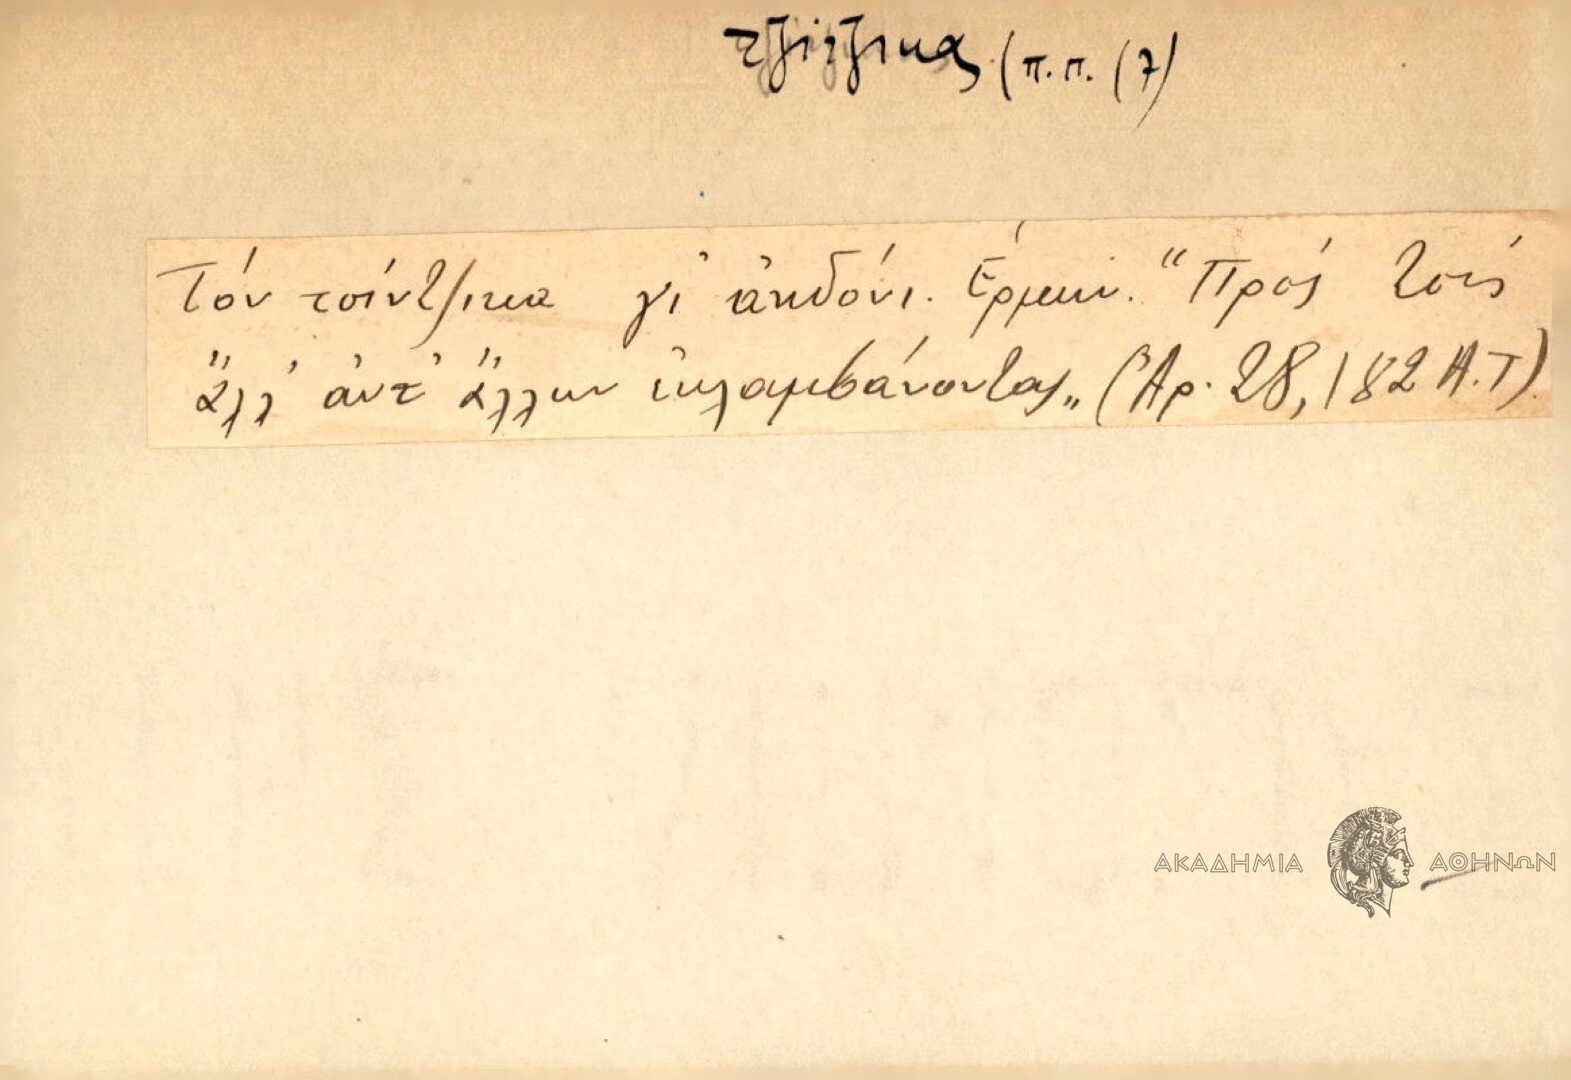 τζίτζικας (π.π. (7)
Τόν τσίντζικα γι' ἀηδόνι. Ἑρμην. "Πρός τούς
ἄλλ' ἀντ' ἄλλων ἐκλαμβάνοντας„ (Ἀρ. 28, 182 Α.Τ)
ΑΚΑΔΗΜΙΑ ΑΘΗΝΩΝ